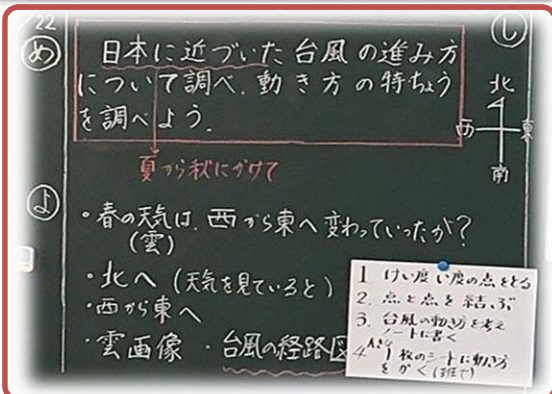 22
め
日本に近づいた台風の進み方
について調べ、動き方の特ちょう
を調べよう。
夏から秋にかけて
し
北
西 東
南
よ
・春の天気は、西から東へ変わっていったが?
(雲)
・北へ(天気を見ていると)
・西から東へ
・雲画像 ・台風の経路図
1 けい度い度の点をとる
2. 点と点を結ぶ
3. 台風の動き方を考え
シートに書く
4 1枚のシートに動き方
をかく(班で)